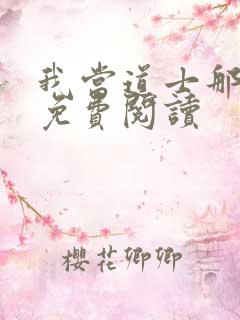 我當道士那
免費閱讀
櫻花卿卿